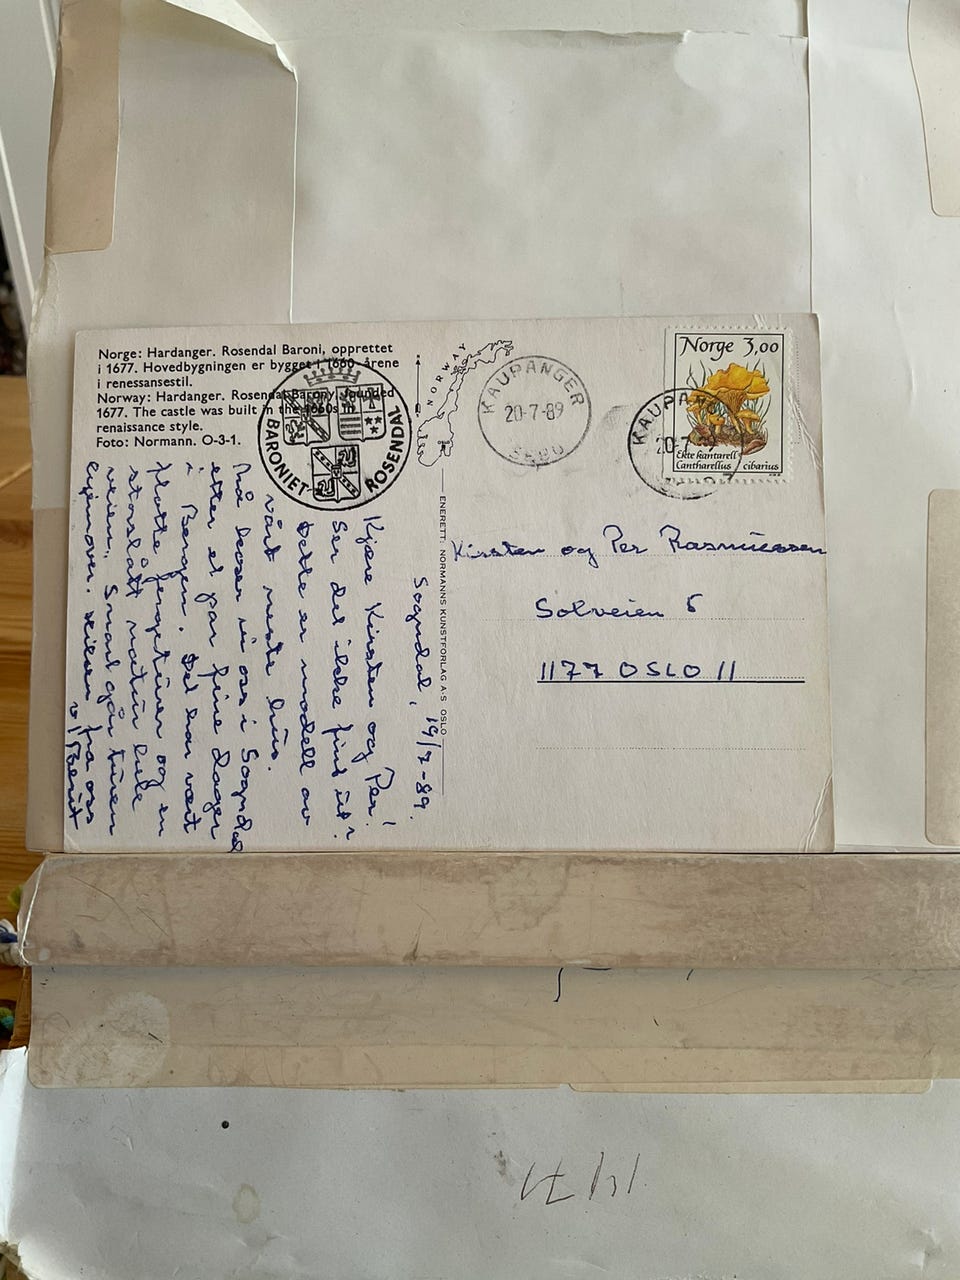 Norge: Hardanger. Rosendal Baroni, opprettet
i 1677. Hovedbygningen er bygget i 1660-årene
i renessansestil.
Norway: Hardanger. Rosendal Barony, founded
1677. The castle was built in the 1660s in
renaissance style.
Foto: Normann. O-3-1.
BARONIET ROSENDAL
NORWAY
KAUPANGER
20-7-89
5880
Norge 3,00
Ekte kantarell
Cantharellus cibarius
KAUPANG
20-7
ENERETT: NORMANNS KUNSTFORLAG A·S OSLO
Sogndal, 19/7-89.
Kjære Kirsten og Per!
Ser det ikke fint ut?
Dette er modell av
vårt neste hus.
Nå koser vi oss i Sogndal
etter et par fine dager
i Bergen. Det har vært
flotte fjergeturer og en
storslått natur hele
veien. Snart går turen
hjemover. Hilsen fra oss
v/Berit
Kirsten og Per Rasmussen
Solveien 5
1177 OSLO 11